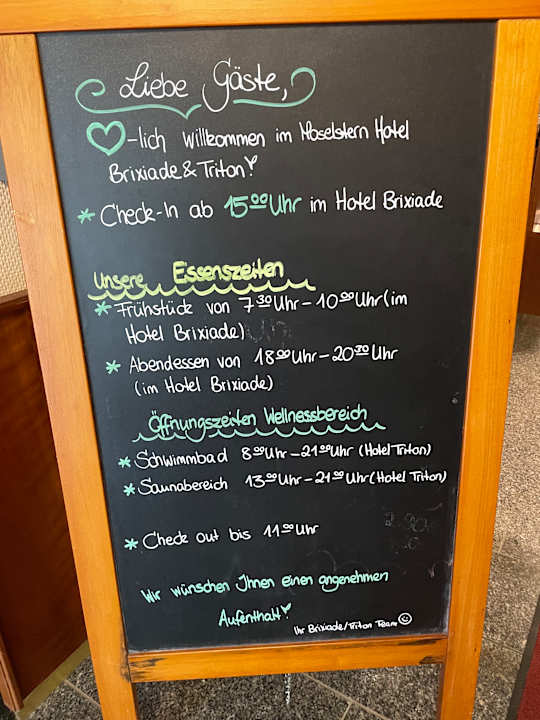 Liebe Gäste,
♥-lich Willkommen im Moselstern Hotel
Brixiade & Triton!
* Check-In ab 15⁰⁰ Uhr im Hotel Brixiade
Unsere Essenszeiten
* Frühstück von 7³⁰ Uhr – 10⁰⁰ Uhr (im
Hotel Brixiade)
* Abendessen von 18⁰⁰ Uhr – 20³⁰ Uhr
(im Hotel Brixiade)
Öffnungszeiten Wellnessbereich
* Schwimmbad 8⁰⁰ Uhr – 21⁰⁰ Uhr (Hotel Triton)
* Saunabereich 13⁰⁰ Uhr – 21⁰⁰ Uhr (Hotel Triton)
* Check out bis 11⁰⁰ Uhr
Wir wünschen Ihnen einen angenehmen
Aufenthalt!
Ihr Brixiade/Triton Team ☺